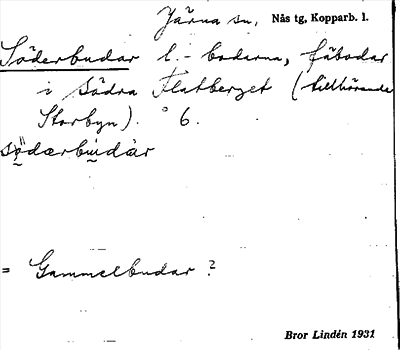 Järna sn, Nås tg, Kopparb. l.
Söderbudar l. - bodarna, fäbodar
i södra Flatberget (tillhörande
Storbyn). ° 6.
södærbudàr
= Gammelbudar?
Bror Lindén 1931